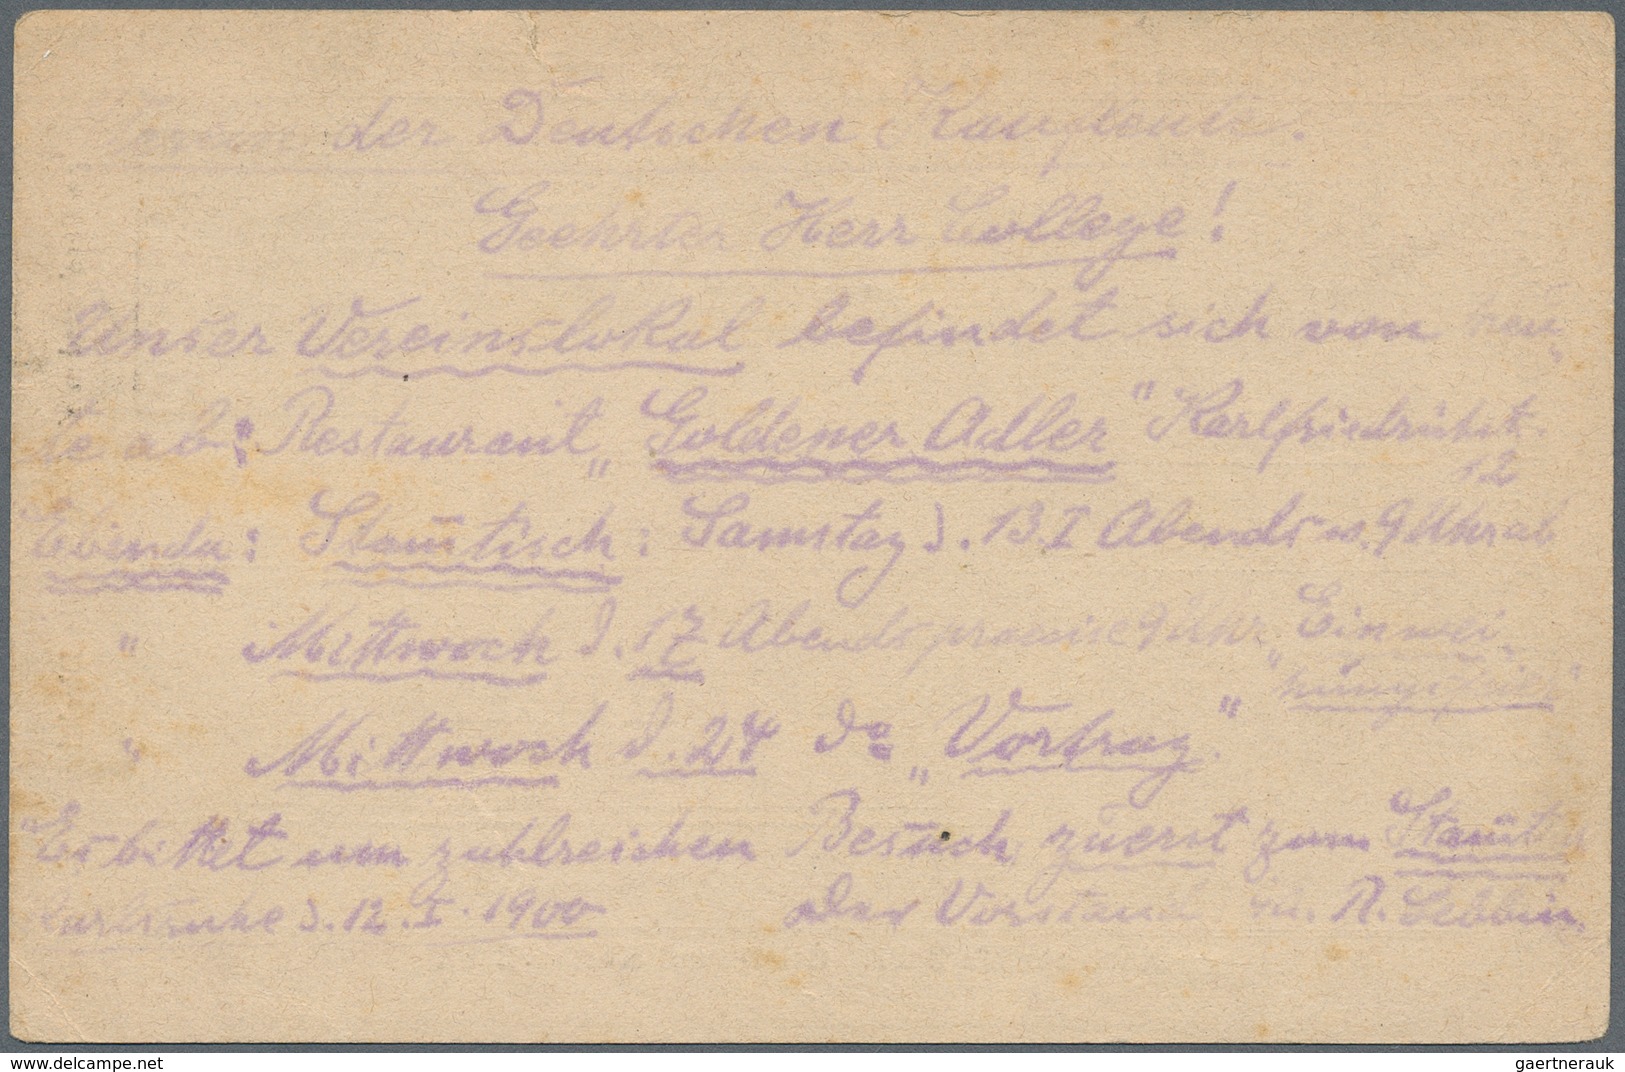 der Deutschen Kaufleute.
Geehrter Herr College!
Unser Vereinslokal befindet sich von heu-
te ab: Restaurant „Goldener Adler" Karlfriedrichst.
12
Ebenda: Stam̄tisch: Samstag d. 13.I Abends v. 9 Uhr ab
" Mittwoch d. 17 Abends praecise 9 Uhr „Einwei-
hungs
" Mittwoch d. 24 do „Vortrag"
Es bittet um zahlreichen Besuch, zuerst zum Stam̄t
Karlsruhe d. 12. I. 1900 Der Vorstand R.
www.delcampe.net
gaertnerauk